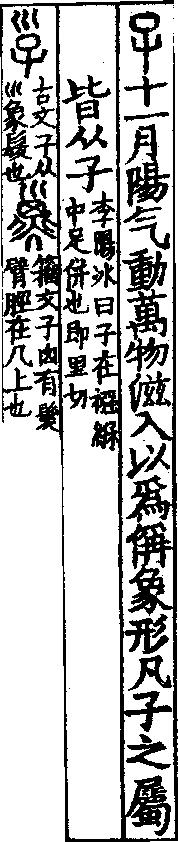 子十一月陽气動萬物滋入以爲偁象形凡子之屬
皆从子李陽冰曰子在襁緥
中足併也即里切
㜽古文子从
巛象髮也
籀文子囟有髮
臂脛在几上也